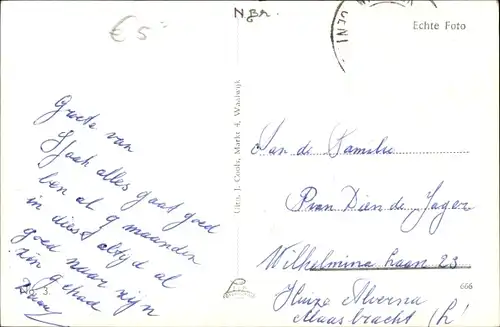 € 5
Groete van
Sjaak alles gaat goed
ben al 9 maanden
in dienst altijd al
goed naar zijn
zin gehad
No. 3.
Uitg. J. Cools, Markt 4, Waalwijk
Echte Foto
Aan de Familie
Pran Dien de Jager
Wilhelmina laan 23
666
Huize Alverna
Maasbracht (L)